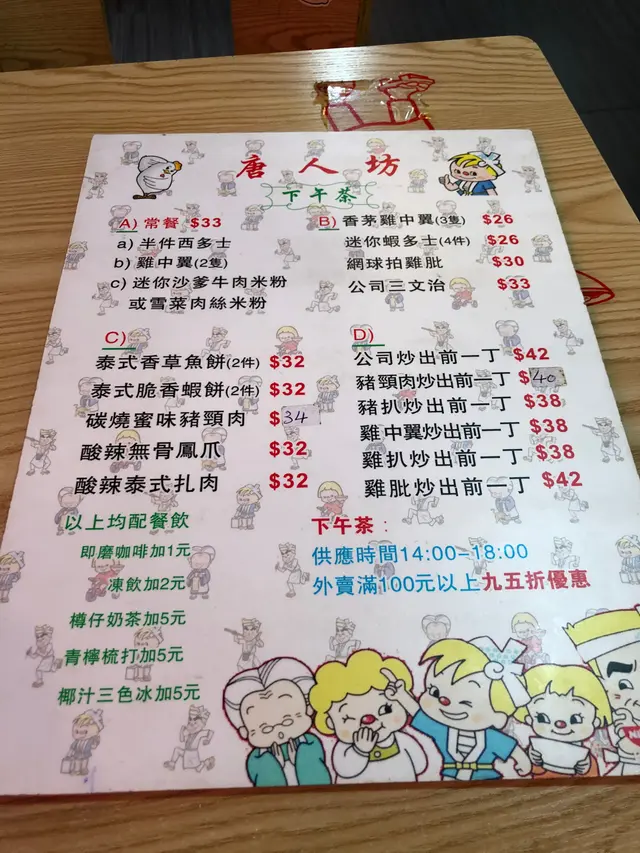 唐人坊
下午茶
A) 常餐 $33
a) 半件西多士
b) 雞中翼(2隻)
c) 迷你沙爹牛肉米粉
或雪菜肉絲米粉
B) 香茅雞中翼(3隻) $26
迷你蝦多士(4件) $26
網球拍雞肶 $30
公司三文治 $33
C)
泰式香草魚餅(2件) $32
泰式脆香蝦餅(2件) $32
碳燒蜜味豬頸肉 $34
酸辣無骨鳳爪 $32
酸辣泰式扎肉 $32
D)
公司炒出前一丁 $42
豬頸肉炒出前一丁 $40
豬扒炒出前一丁 $38
雞中翼炒出前一丁 $38
雞扒炒出前一丁 $38
雞肶炒出前一丁 $42
以上均配餐飲
即磨咖啡加1元
凍飲加2元
樽仔奶茶加5元
青檸梳打加5元
椰汁三色冰加5元
下午茶：
供應時間14:00–18:00
外賣滿100元以上九五折優惠